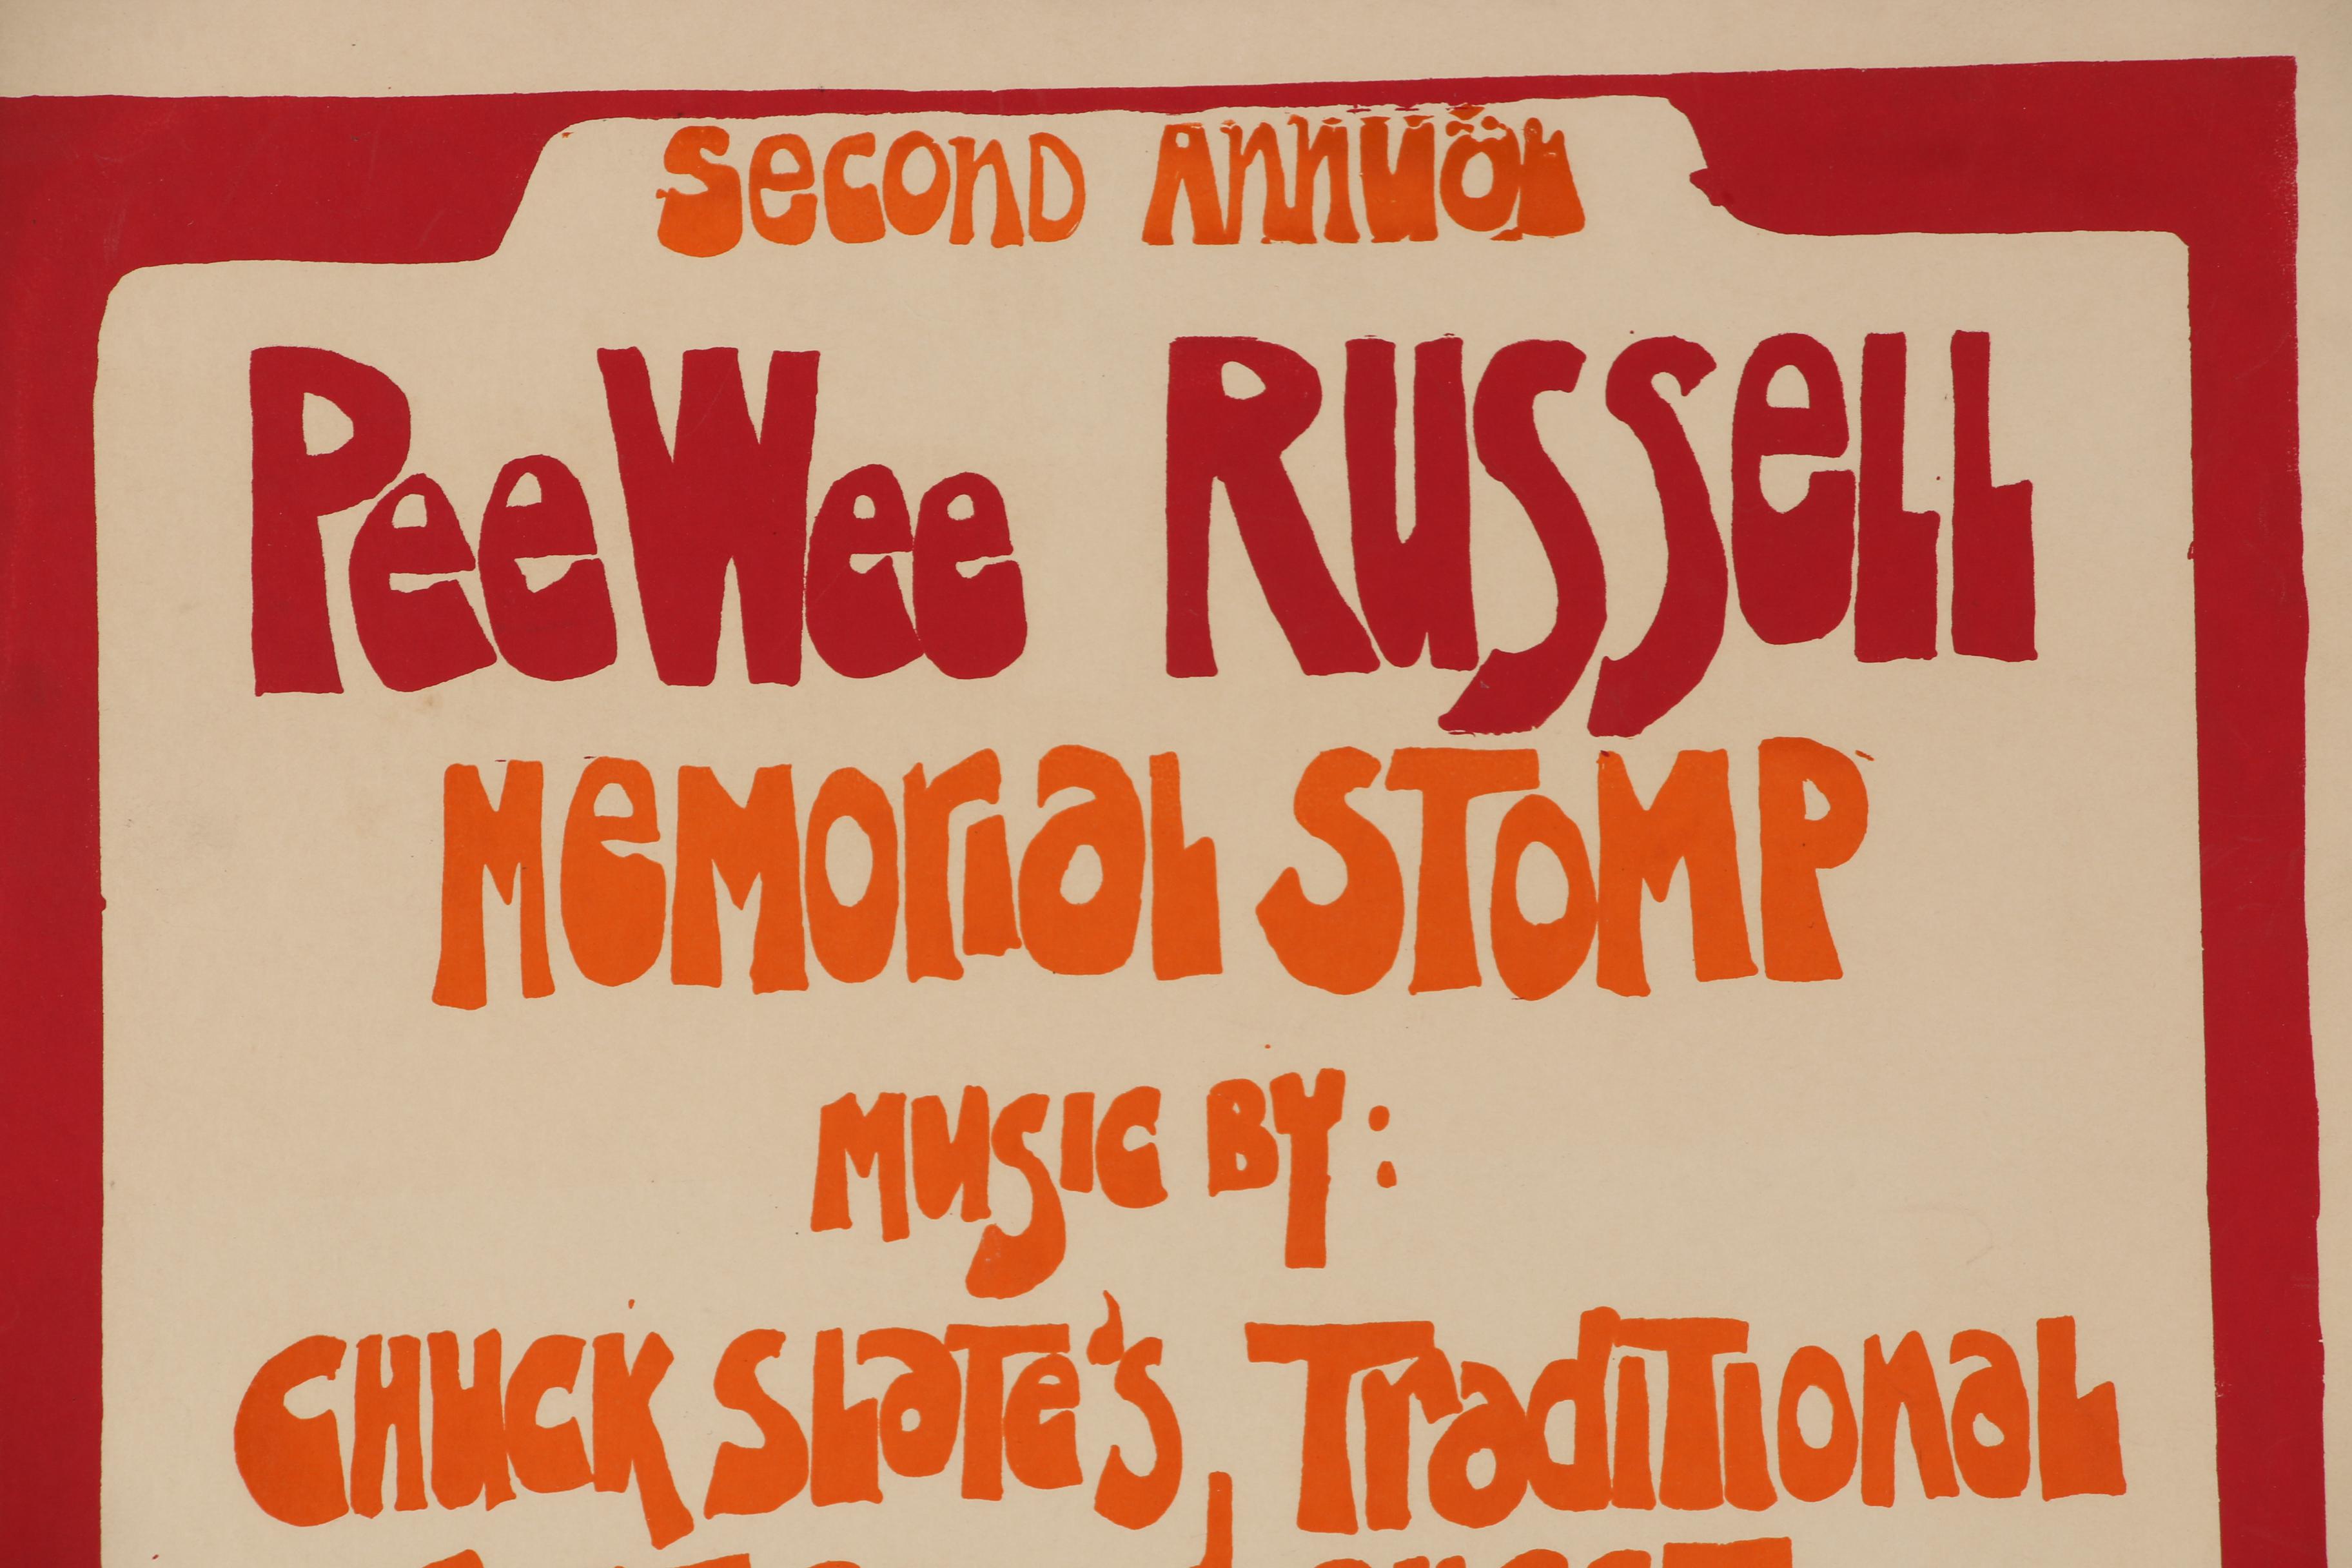 Second Annual
PeeWee Russell
Memorial Stomp
Music By:
Chuck Slate's Traditional